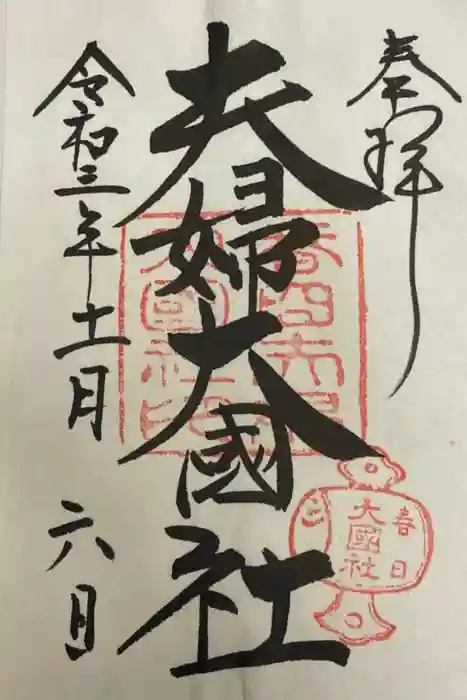 奉拝
夫婦大國社
令和三年十一月
六日
春日
大國社